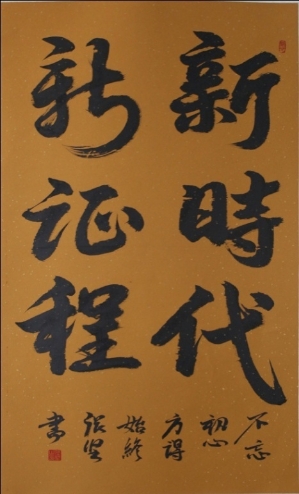 新時代
新征程
不忘
初心
方得
始終
張
書